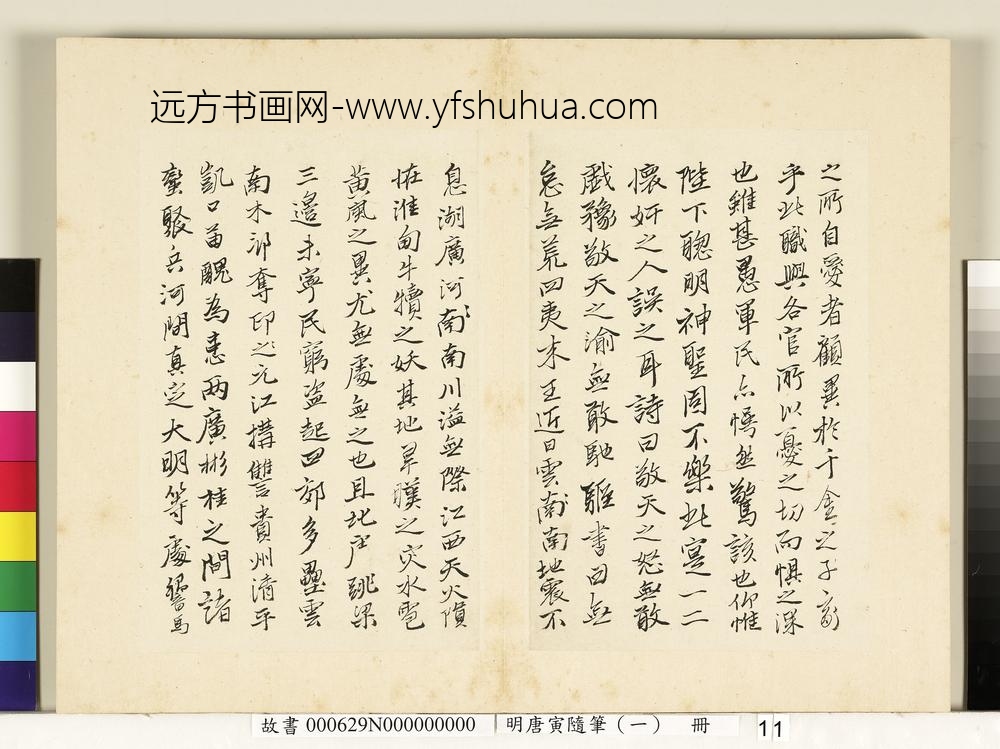 远方书画网-www.yfshuhua.com
之所自愛者顧異於千金之子哉
乎此職與各官所以憂之切而懼之深
也雖甚愚軍民亦愕然驚該也仰惟
陛下聰明神聖固不樂此寔一二
懷奸之人誤之耳詩曰敬天之怒無敢
戲豫敬天之渝無敢馳驅書曰無
怠無荒四夷來王近日雲南南地震不
息湖廣河南南川溢無際江西天火隕
怪淮甸牛犢之妖其地旱暵之灾水雹
黃風之異尤無處無之也且北虜跳梁
三邊未寧民窮盜起四郊多壘雲
南木邦奪印之元江搆讐貴州清平
凱口苗醜為患兩廣彬桂之間諸
蠻聚兵河間真定大明等處響馬
故書 000629N000000000
明唐寅隨筆（一） 冊
11